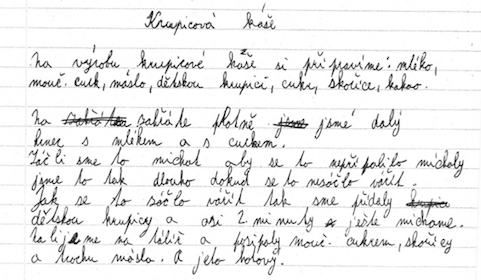 Krupicová káše
Na výrobu krupicové káše si připravíme: mléko,
mouč. cukr, máslo, dětskou krupici, cukr, skořice, kakao.
Na zahřáté plotně jsme daly
hrnec s mlékem a s cuckem.
Záčli sme to míchat aby se to nepřipalilo míchaly
jsme to tak dlouho dokud se to nesáčlo vářit.
Jak se to sáčlo vářit tak sme přidaly
dětskou krupicy a asi 2 minuty ješte míchame.
Nalijeme na táliř a posipaly mouč. cukrem, skořicy
a trochu másla. A jeto hotový.